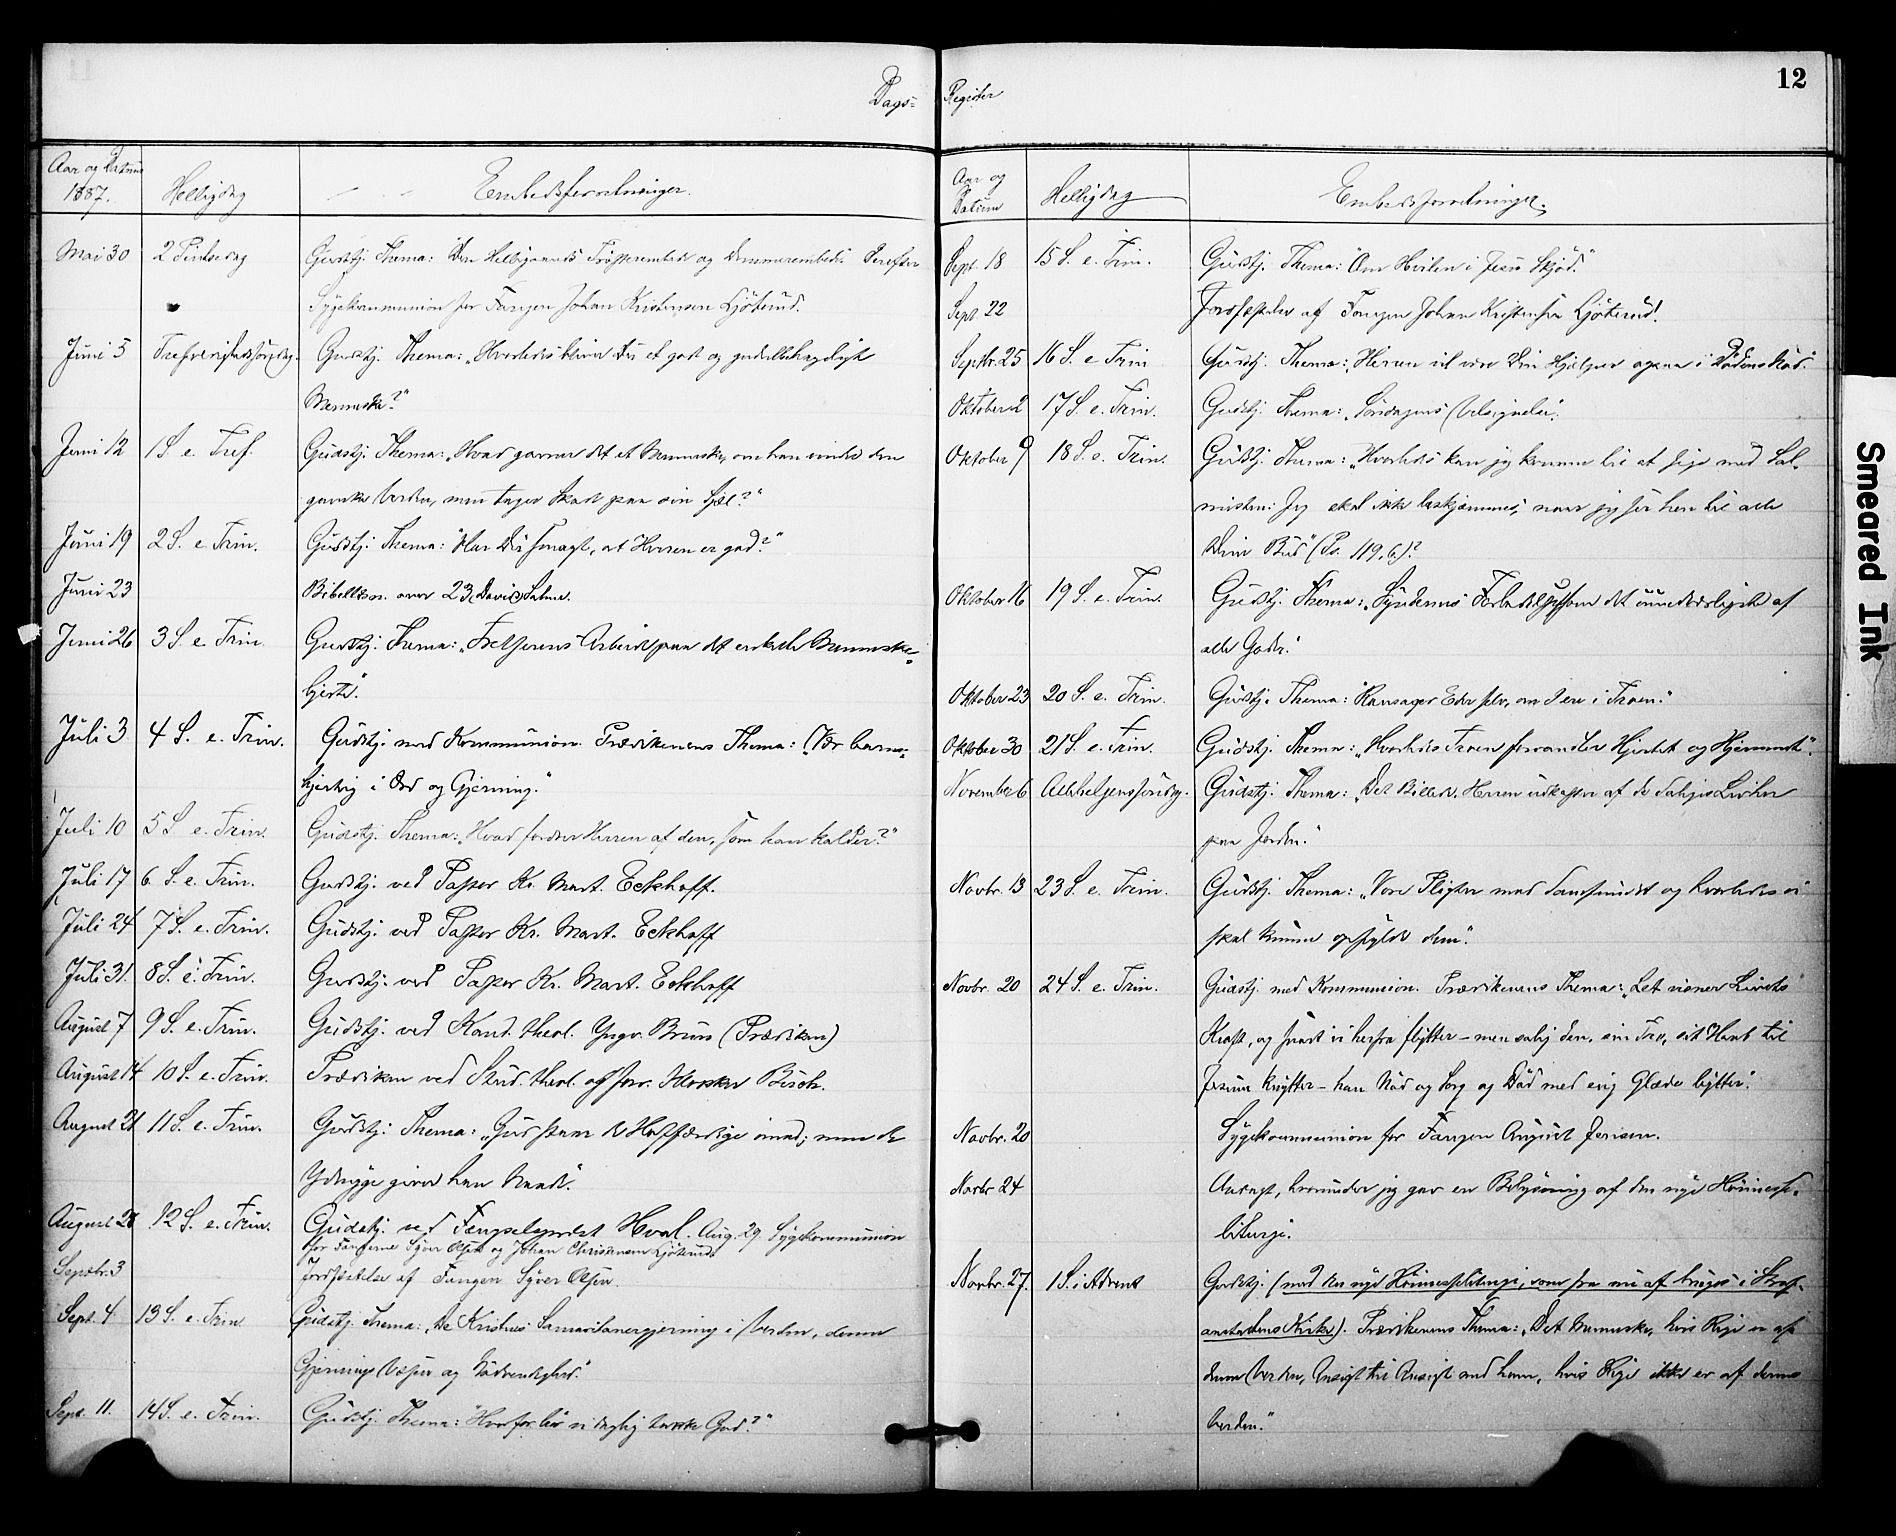 Dags-
Aar og Datum
1887.
Helligdag
Embedsforretninger.
Mai 30 2 Pintsedag Gudstj. Thema: Den Helligaands Trøsterembede og Dommerembede. Derefter
Sygekommunion for Fangen Johan Kristensen Ljöterud.
Juni 5 Trefoldighedssöndg. Gudstj. Thema: „Hvorledes bliver Du et godt og gudvelbehageligt
Menneske?"
Juni 12 1 S. e. Tref. Gudstj. Thema: „Hvad gavner det et Menneske, om han vinder den
ganske Verden, men tager Skade paa sin Sjæl?"
Juni 19 2 S. e. Trin. Gudstj. Thema: "Har Du smagt, at Herren er god?"
Juni 23 Bibellæsn. over 23 Davids Salme.
Juni 26 3 S. e. Trin. Gudstj. Thema: „Frelserens Arbeide paa det enkelte Menneske-
hjerte".
Juli 3 4 S. e. Trin. Gudstj. med Kommunion. Prædikenens Thema: „Vær barm-
hjertig i Ord og Gjerning."
Juli 10 5 S. e. Trin. Gudstj. Thema: „Hvad fordrer Herren af den, som han kalder?"
Juli 17 6. S. e. Trin. Gudstj. ved Pastor Kr. Mart. Eckhoff.
Juli 24 7 S. e. Trin. Gudstj. ved Pastor Kr. Mart. Eckhoff
Juli 31. 8 S. e. Trin. Gudstj. ved Pastor Kr. Mart. Eckhoff
August 7 9 S. e. Trin. Gudstj. ved Kand. theol. Yngv. Bruun (Prædiken)
August 14 10 S. e. Trin. Prædiken ved Stud. theol. Bisch.
August 21 11 S. e. Trin. Gudstj. Thema: „Gud staar de Hoffærdige imod; men de
Ydmyge giver han Naade".
August 28 12 S. e. Trin. Gudstj. ved Fængselsprest Hval. Aug. 29. Sygekommunion
for Fangerne Syver Olsen og Johan Christensen Ljöterud.
Septbr. 3 Jordfæstelse af Fangen Syver Olsen.
Sept. 4 13 S. e. Trin. Gudstj. Thema: „De Kristnes Samaritanergjerning i Verden, denne
Gjernings Væsen og Nödvendighed."
Sept. 11. 14 S. e. Trin. Gudstj. Thema: "Hvorfor bör vi daglig takke Gud?"
Register
12
Aar og
Datum
Helligdag
Embedsforretninger.
Sept. 18 15 S. e. Trin. Gudstj. Thema: "Om Hvilen i Jesu Skjöd."
Sept. 22 Jordfæstelse af Fangen Johan Kristensen Ljöterud.
Septbr. 25 16 S. e. Trin Gudstj. Thema: „Herren vil være Din Hjælper ogsaa i Dödens Nöd."
Oktober 2 17 S. e. Trin. Gudstj. Thema: „Söndagens Velsignelse."
Oktober 9 18 S. e. Trin. Gudstj. Thema: „Hvorledes kan jeg komme til at sige med Sal-
misten: Jeg skal ikke beskjæmmes, naar jeg ser hen til alle
Dine Bud" (Ps. 119, 6)?
Oktober 16 19 S. e. Trin. Gudstj. Thema: „Syndernes Forladelse som det umiddelbarste af
alle Goder."
Oktober 23 20 S. e. Trin. Gudstj. Thema: "Ransager Eder selv, om I ere i Troen."
Oktober 30 21 S. e. Trin. Gudstj. Thema: „Hvorledes Troen forvandler Hjertet og Hjemmet".
November 6 Allehelgenssöndg. Gudstj. Thema: „Det Billede, Herren udkaster af de Saliges Liv her
paa Jorden."
Novbr. 13 23 S. e. Trin. Gudstj. Thema: „Vore Pligter mod Samfundet og hvorledes vi
skal kunne opfylde dem."
Novbr. 20 24 S. e. Trin. Gudstj. med Kommunion. Prædikenens Thema: „Let visner Livets
Kraft, og snart vi herfra flytter – men salig den, sin Tro, sit Haab til
Jesum knytter – han Nöd og Sorg og Död med evig Glæde bytter".
Novbr. 20 Sygekommunion for Fangen August Jensen.
Novbr. 24 Andagt, hvorunder jeg gav en Belysning af den nye Höimesse-
liturgi.
Novbr. 27. 1 S. i Advent Gudstj. (med den nye Höimesseliturgi, som fra nu af bruges i Straf-
anstaltens Kirke). Prædikenens Thema: „Det Menneske, hvis Rige er af
denne Verden, Ansigt til Ansigt med ham, hvis Rige ikke er af denne
Verden."
Smeared Ink